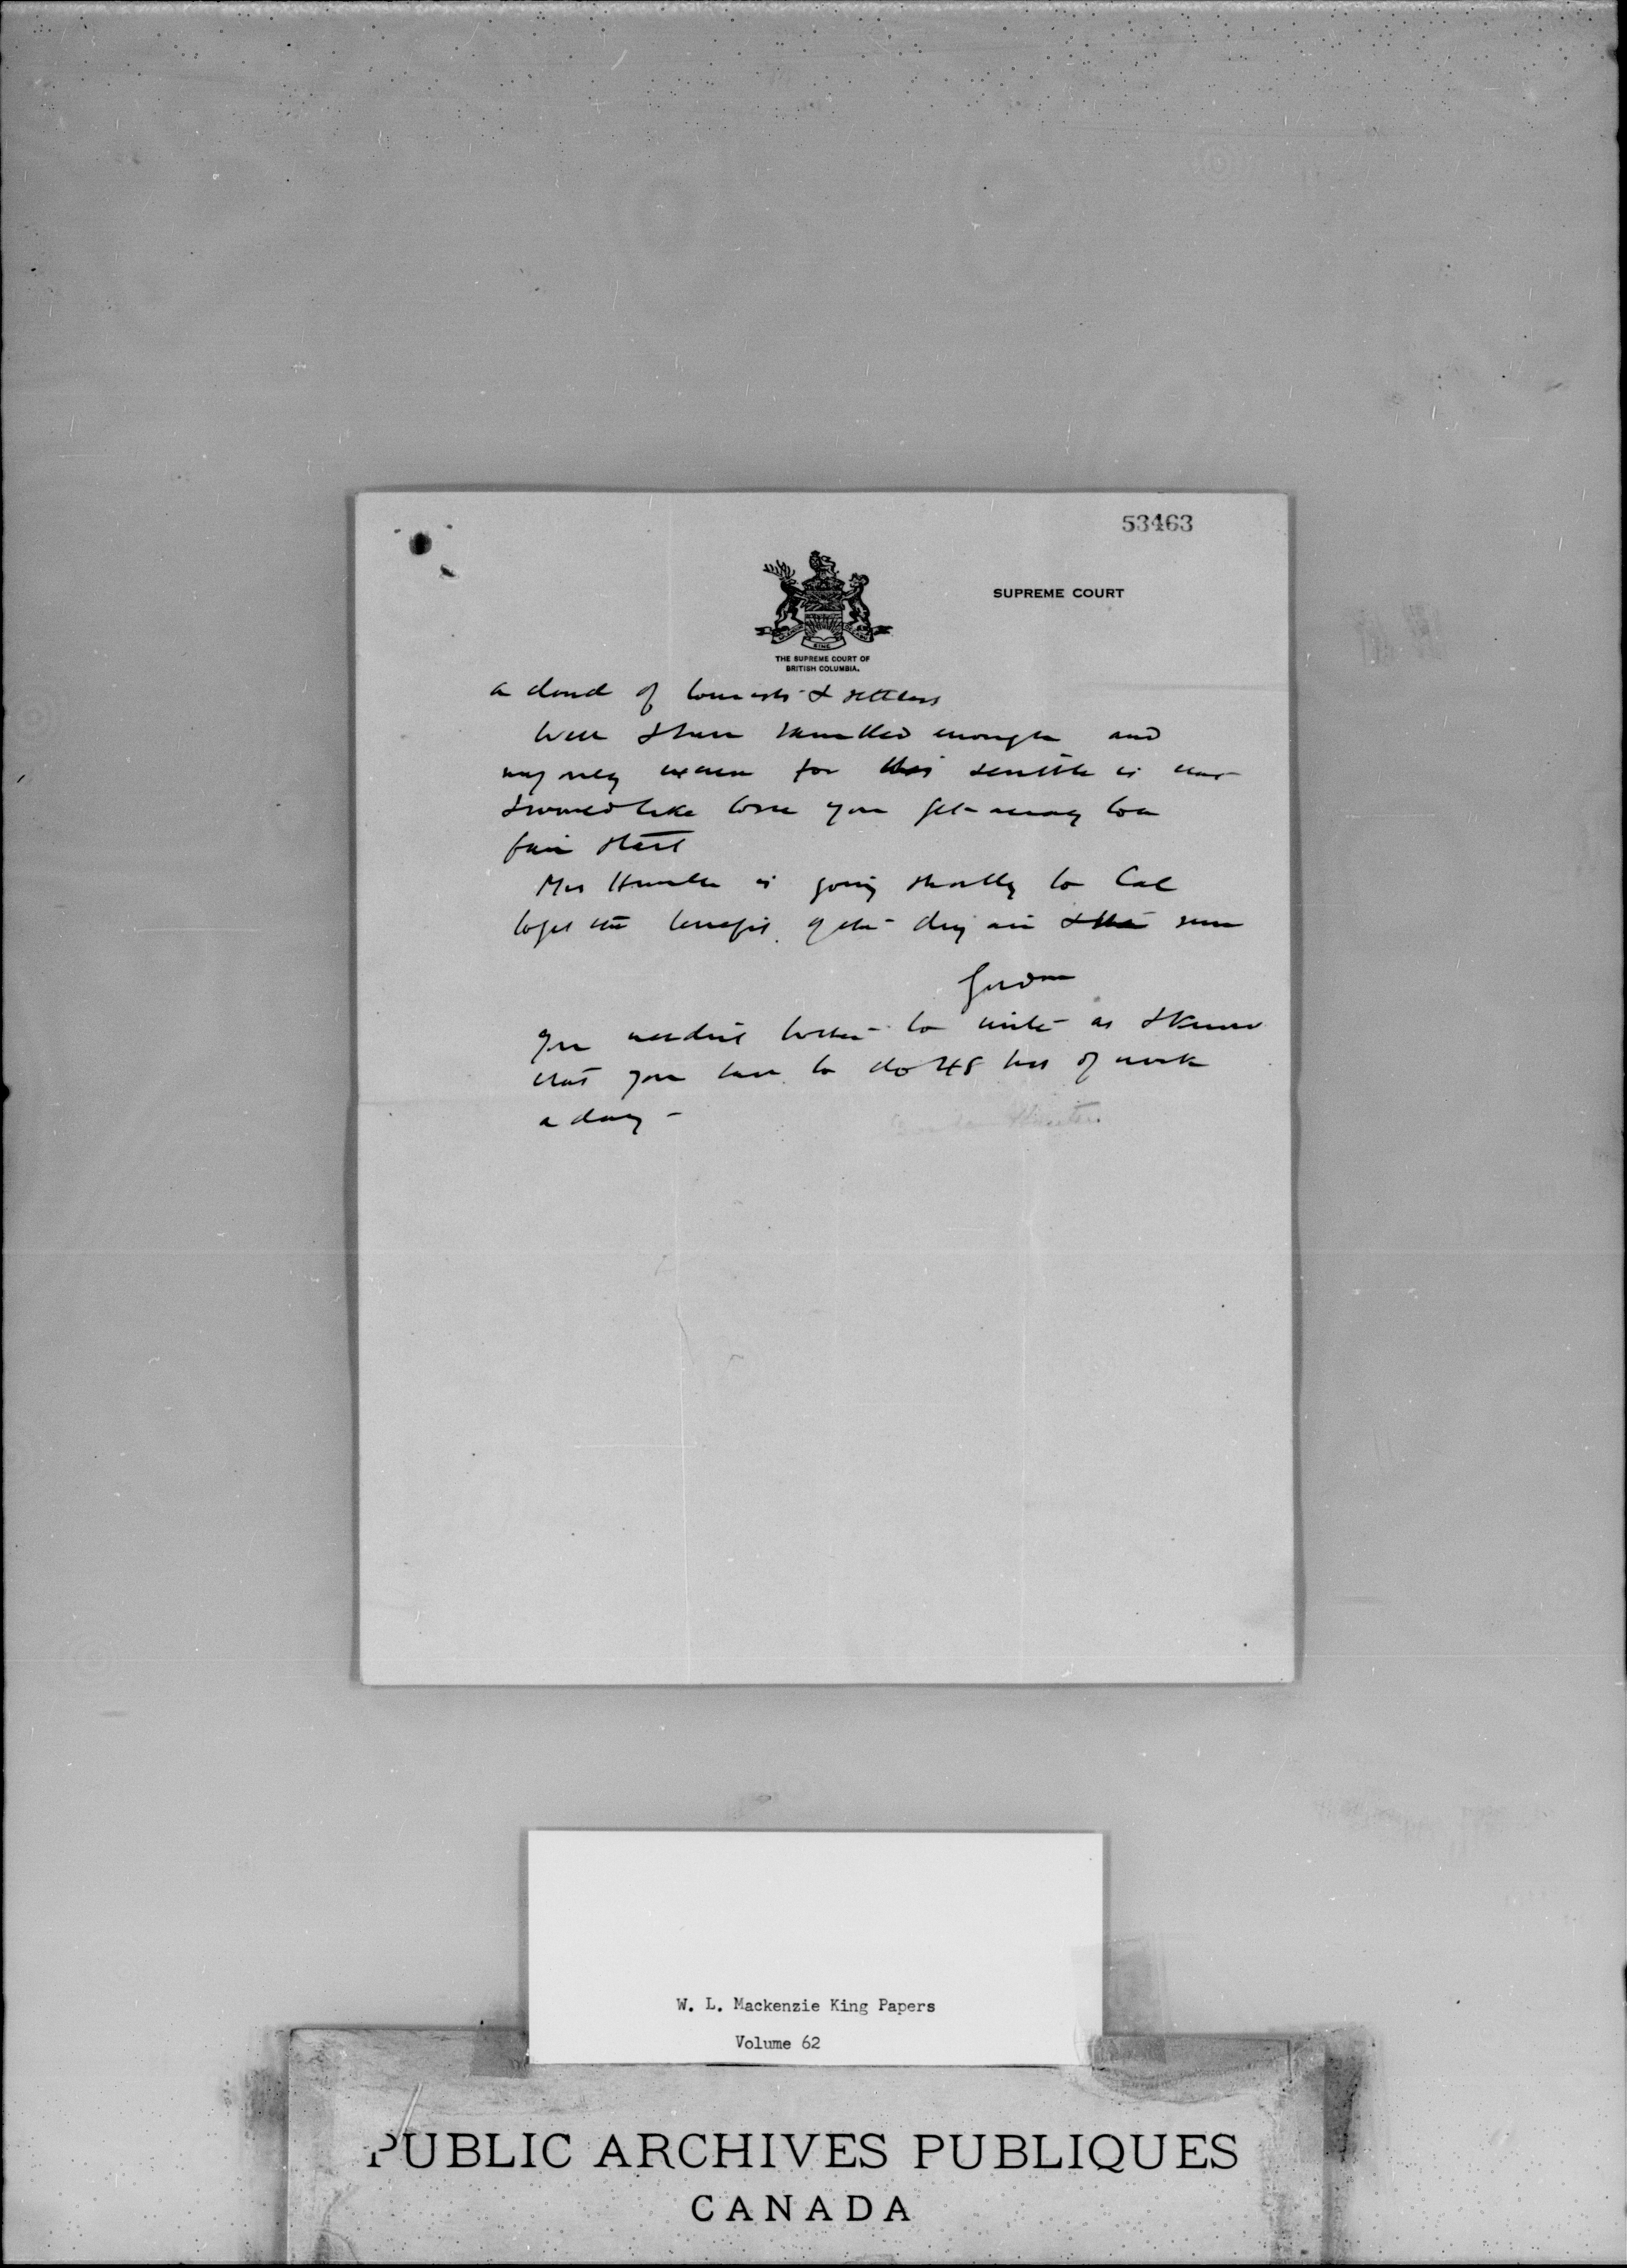 53463
SUPREME COURT
THE SUPREME COURT OF
BRITISH COLUMBIA.
a cloud of tourists & settlers
Well I have rambled enough and
my only excuse for this is that
I would like to see you get away to a
fair start
Mrs Hunter is going shortly to Cal
to get the benefit of the dry air & the sun
Gordon
You needn't bother to write as I know
that you have to do 48 hrs of work
a day -
Gordon Hunter.
W. L. Mackenzie King Papers
Volume 62
PUBLIC ARCHIVES PUBLIQUES
CANADA